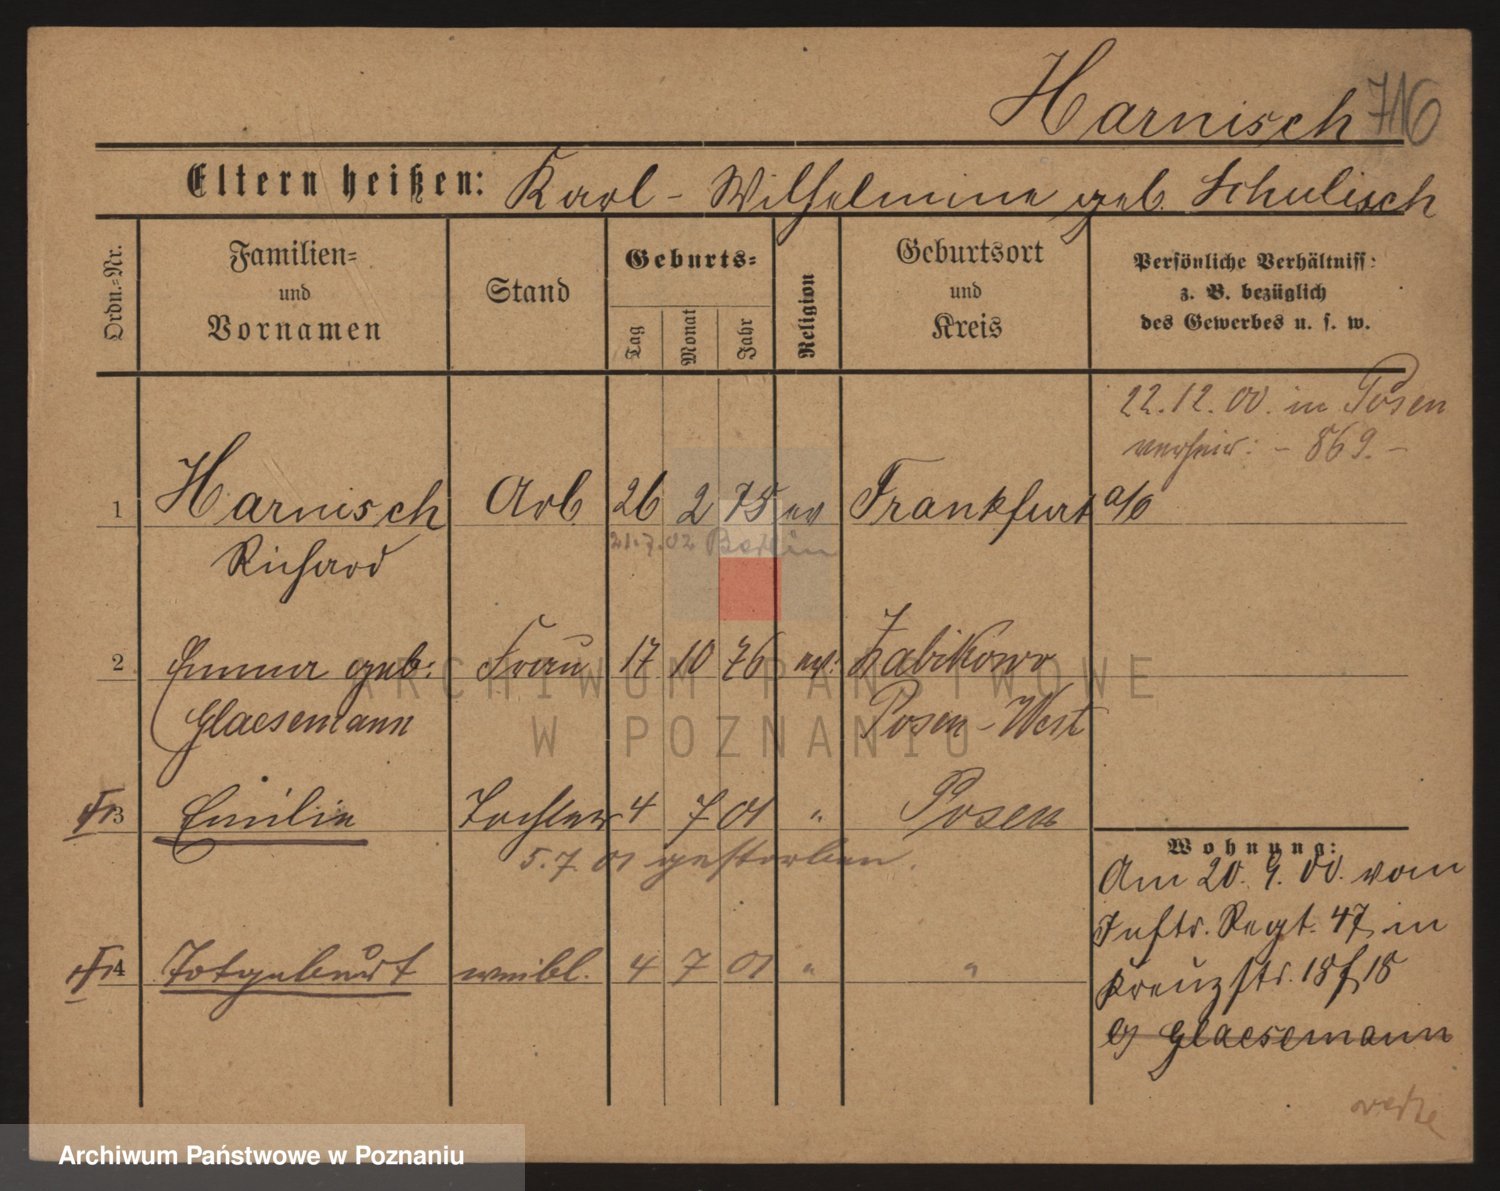 Harnisch 716
Eltern heißen: Karl - Wilhelmine geb. Schulisch
Ordn.-Nr.
Familien-
und
Vornamen
Stand
Geburts-
Tag
Monat
Jahr
Religion
Geburtsort
und
Kreis
Persönliche Verhältniss:
z. B. bezüglich
des Gewerbes u. s. w.
22.12.00. in Posen
verheir: - 869. -
1 Harnisch Arb 26 2 75 ev Frankfurt a/o
21.7.02 Berlin
Richard
2 Emma geb: Frau 17 10 76 ev: Zabikowo
Glaesemann Posen-West
3 Emilie Tochter 4 7 01 " Posen
5.7.01 gestorben.
4 Totgeburt weibl. 4 7 01 " "
Wohnung:
Am 20. 9. 00. vom
Inftr. Regt. 47 in
Kreuzstr. 18 f 18
bj Glaesemann
ARCHIWUM PAŃSTWOWE
W POZNANIU
Archiwum Państwowe w Poznaniu